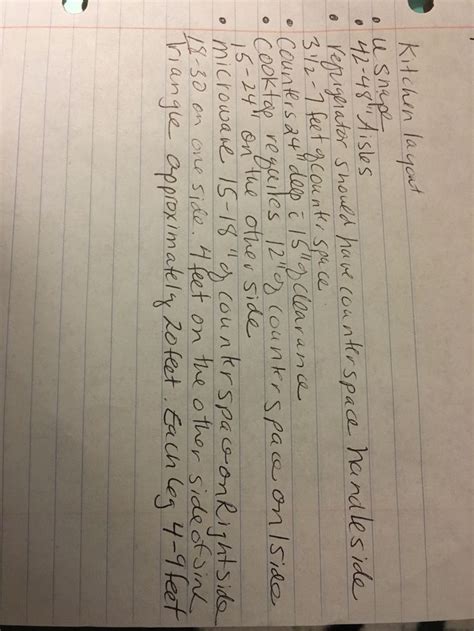 Kitchen layout
• U shape
42-48" Aisles
• refrigerator should have counterspace handle side
3 1/2-7 feet of counter space.
• Counters 24" deep c̄ 15" of clearance
• Cooktop requires 12" of counterspace on 1 side
15-24" on the other side
• microwave 15-18" of counterspace on Right side
18-30 on one side. 4 feet on the other side of sink
triangle approximately 20 feet. Each leg 4-9 feet